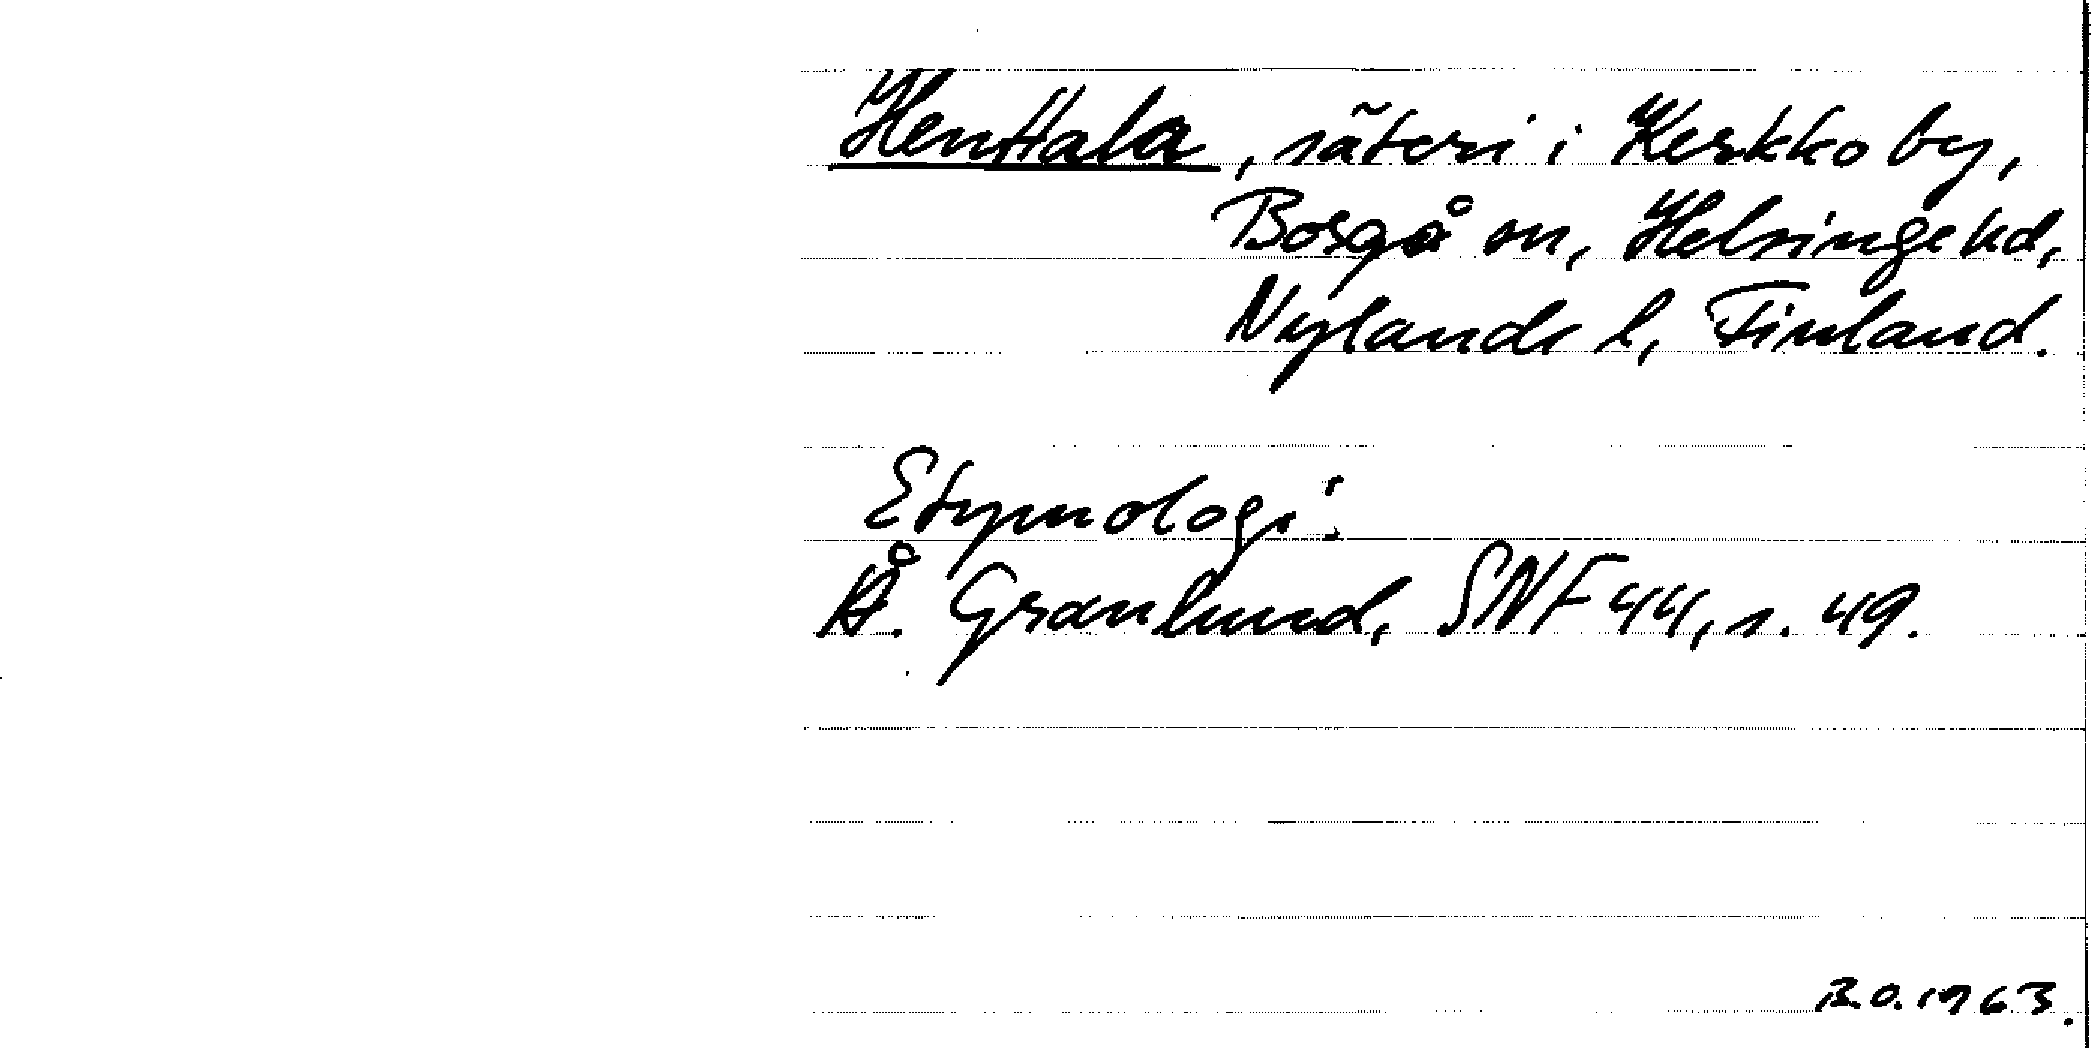 Henttala, säteri i Kerkko by,
Borgå sn, Helsinge hd,
Nylands l, Finland.
Etymologi:
Å. Granlund, SNF 44, s. 49.
B.O. 1963.